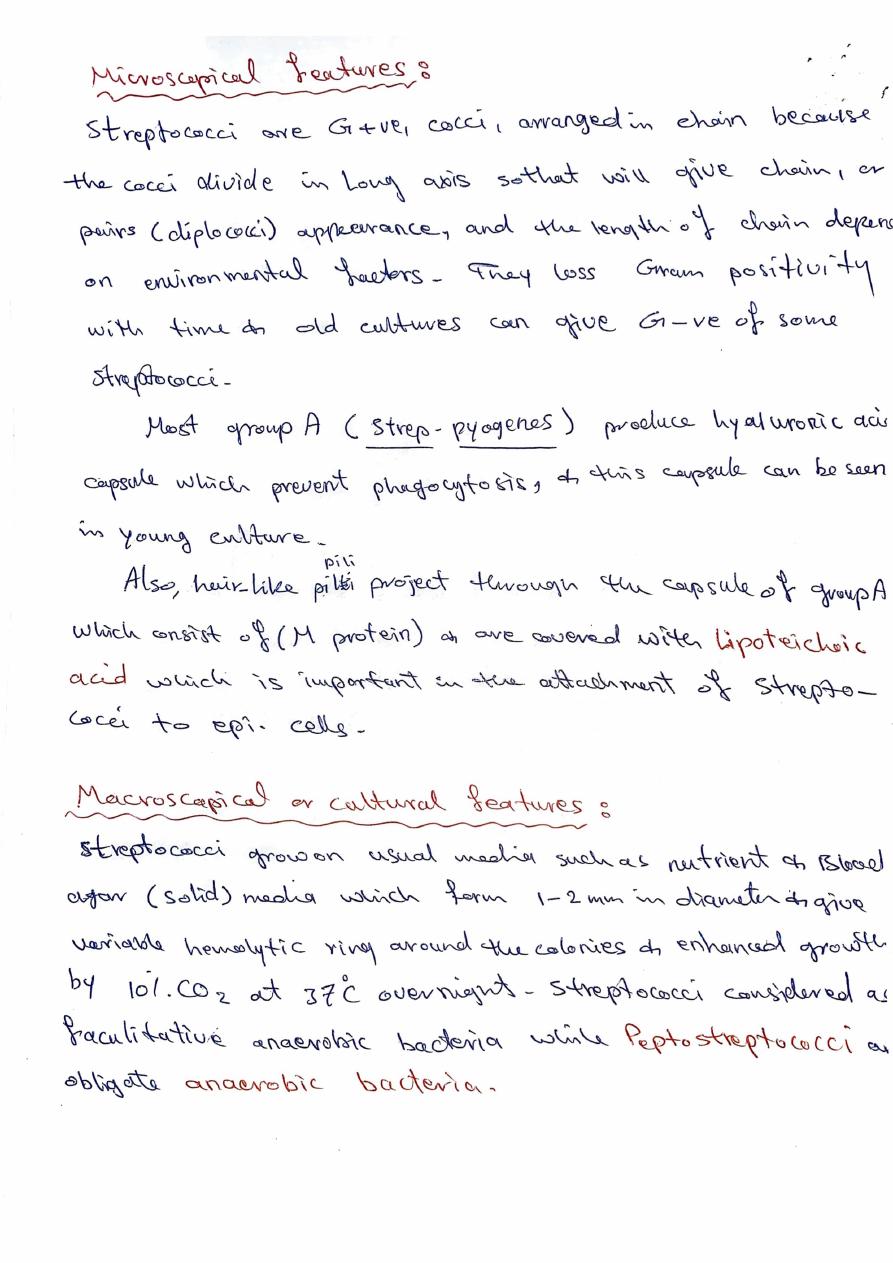 Microscopical features:
Streptococci are G+ve, cocci, arranged in chain because
the cocci divide in long axis so that will give chain, or
pairs (diplococci) appearance, and the length of chain depend
on environmental factors. They loss Gram positivity
with time & old cultures can give G-ve of some
streptococci.
Most group A (strep. pyogenes) produce hyaluronic acid
capsule which prevent phagocytosis, & this capsule can be seen
in young culture.
pili
Also, hair-like pili project through the capsule of group A
which consist of (M protein) & are covered with Lipoteichoic
acid which is important in the attachment of Strepto-
cocci to epi. cells.
Macroscapical or cultural features:
Streptococci grow on usual media such as nutrient & Blood
agar (solid) media which form 1-2 mm in diameter & give
variable hemolytic ring around the colonies & enhanced growth
by 10%. CO₂ at 37°C overnight. Streptococci considered as
faculitative anaerobic bacteria while Peptostreptococci as
obligate anaerobic bacteria.